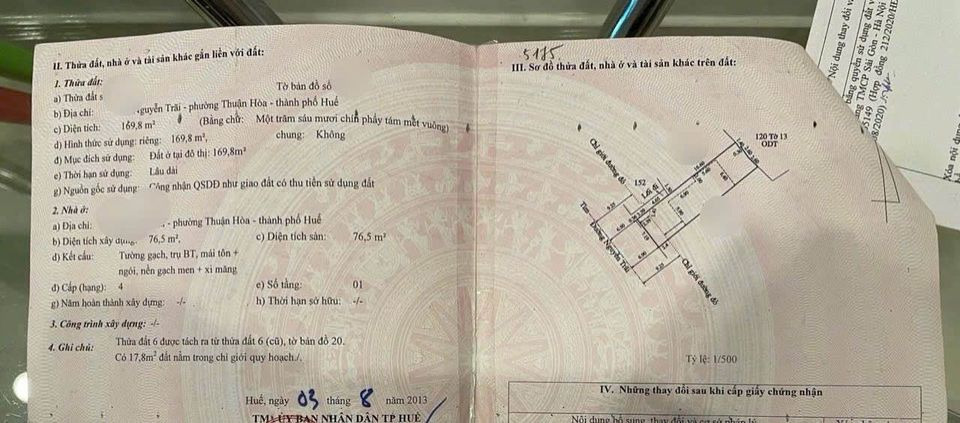 II. Thửa đất, nhà ở và tài sản khác gắn liền với đất:
1. Thửa đất:
a) Thửa đất s Tờ bản đồ số
b) Địa chỉ: guyễn Trãi - phường Thuận Hòa - thành phố Huế
c) Diện tích: 169,8 m² (Bằng chữ: Một trăm sáu mươi chín phảy tám mét vuông)
d) Hình thức sử dụng: riêng: 169,8 m², chung: Không
đ) Mục đích sử dụng: Đất ở tại đô thị: 169,8m²
e) Thời hạn sử dụng: Lâu dài
g) Nguồn gốc sử dụng: Công nhận QSDĐ như giao đất có thu tiền sử dụng đất
2. Nhà ở:
a) Địa chỉ: - phường Thuận Hòa - thành phố Huế
b) Diện tích xây dựng: 76,5 m², c) Diện tích sàn: 76,5 m²
d) Kết cấu: Tường gạch, trụ BT, mái tôn +
ngói, nền gạch men + xi măng
đ) Cấp (hạng): 4 e) Số tầng: 01
g) Năm hoàn thành xây dựng: -/- h) Thời hạn sở hữu: -/-
3. Công trình xây dựng: -/-
4. Ghi chú: Thửa đất 6 được tách ra từ thửa đất 6 (cũ), tờ bản đồ 20.
Có 17,8m² đất nằm trong chỉ giới quy hoạch./.
Huế, ngày 03 tháng 8 năm 2013
TM. ỦY BAN NHÂN DÂN TP HUẾ
5175.
III. Sơ đồ thửa đất, nhà ở và tài sản khác trên đất:
120 Tờ 13
ODT
Chỉ giới đường đỏ
152
Lối đi
9.25
Đường Nguyễn Trãi
Chỉ giới đường đỏ
9.25
Tỷ lệ: 1/500
IV. Những thay đổi sau khi cấp giấy chứng nhận
Nội dung bổ sung, thay đổi và cơ sở pháp lý
Nội dung thay đổi và
bằng quyền sử dụng đất v
ng TMCP Sài Gòn - Hà Nội
5149 (Hợp đồng 212/2020/HĐ
8/2020)
Xóa nội dung